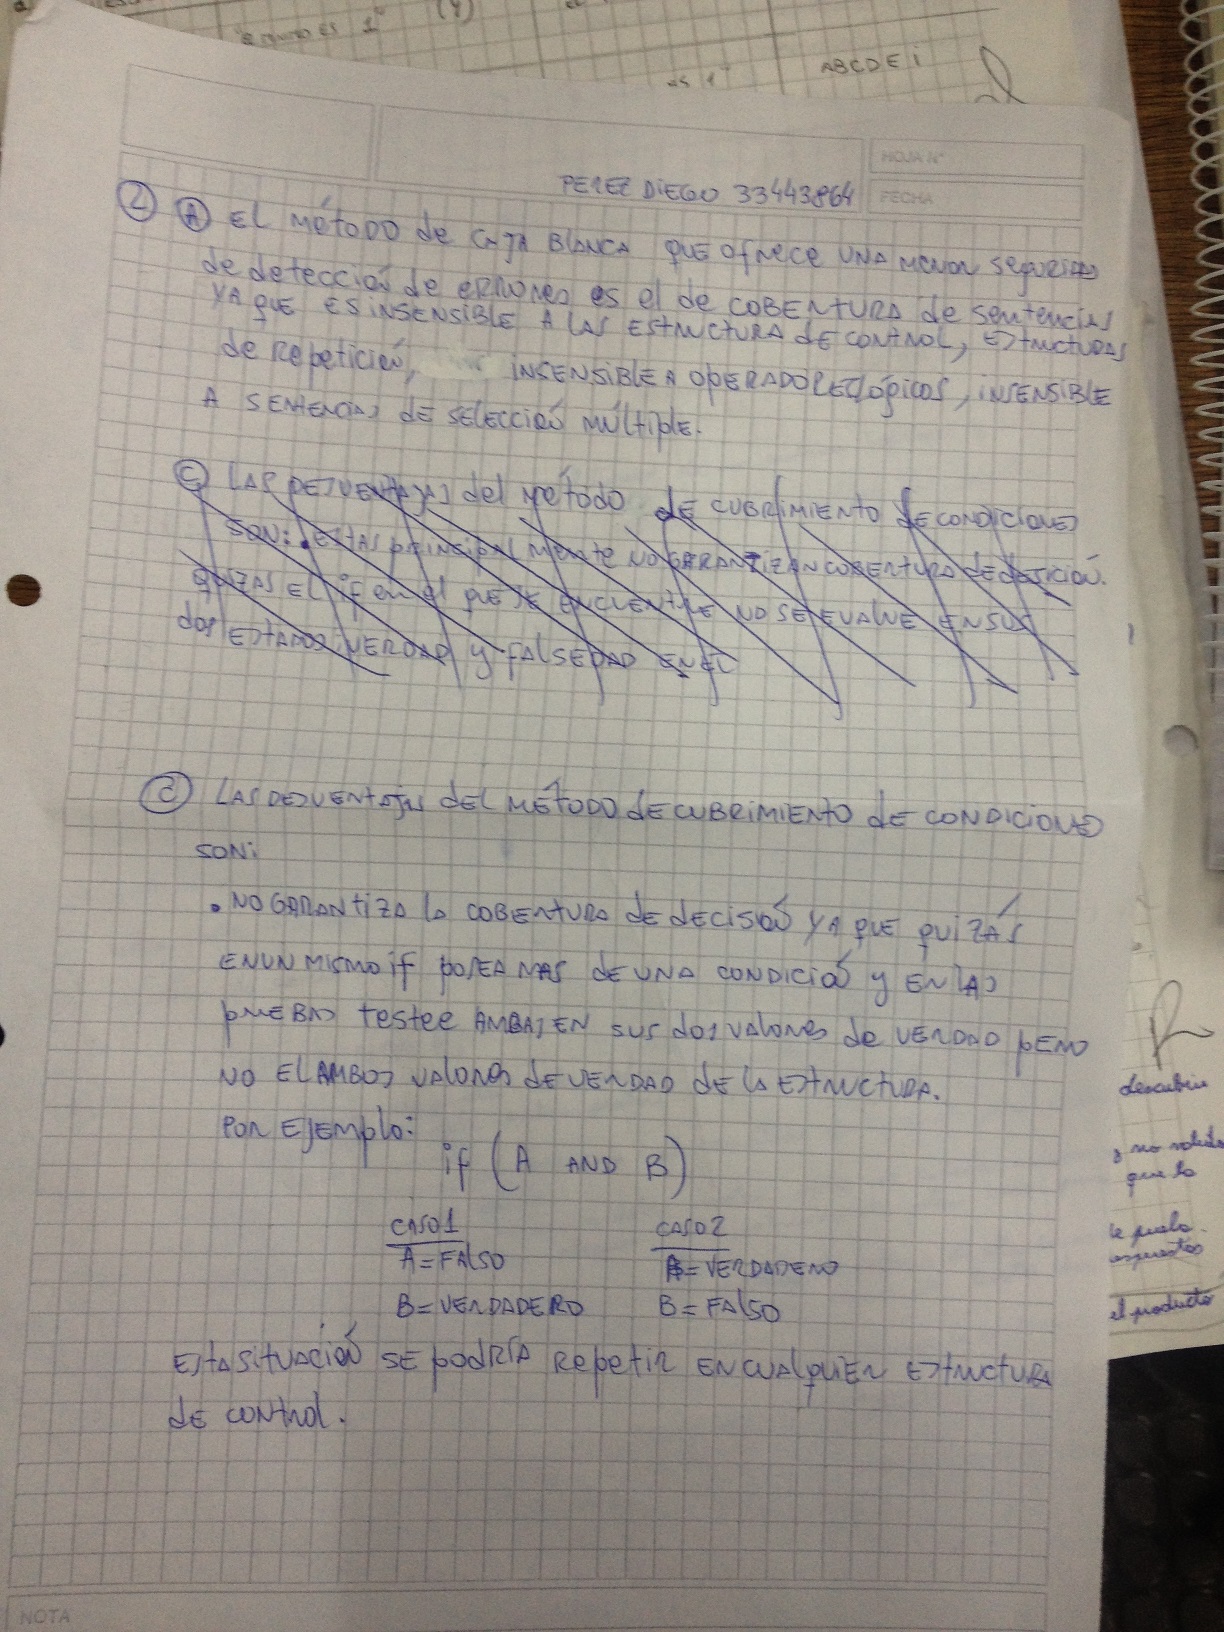 es 1"
ABCDEi
HOJA Nº
FECHA
PEREZ DIEGO 33443864
2 A EL MÉTODO de CAJA BLANCA QUE OFRECE UNA MENOR SEGURIDAD
de detección de errores es el de COBERTURA de sentencias
YA QUE ES INSENSIBLE A LAS ESTRUCTURA DE CONTROL, ESTRUCTURAS
de repetición, INSENSIBLE A OPERADORES lógicos, INSENSIBLE
A SENTENCIAS DE SELECCIÓN MÚLTIPLE.
C LAS DESVENTAJAS del método DE CUBRIMIENTO de CONDICIONES
SON: . ESTAS principalmente NO GARANTIZAN COBERTURA DE DECISIÓN.
QUIZAS EL if en el que SE ENCUENTRE NO SE EVALUE EN SUS
dos ESTADOS, VERDAD y FALSEDAD EN EL
C LAS DESVENTAJAS DEL MÉTODO de CUBRIMIENTO de CONDICIONES
SON:
. NO GARANTIZA la COBERTURA de decisión YA QUE QUIZÁS
EN UN MISMO if POSEA MAS DE UNA CONDICIÓN y EN LAS
PRUEBAS testee AMBAS EN SUS dos VALORES de VERDAD PERO
NO EL AMBOS VALORES DE VERDAD DE LA ESTRUCTURA.
POR EJEMPLO:
if (A AND B)
CASO 1
CASO 2
A = FALSO
A = VERDADERO
B = VERDADERO
B = FALSO
ESTA SITUACIÓN SE PODRÍA REPETIR EN CUALQUIER ESTRUCTURA
DE CONTROL.
que lo
el producto
NOTA